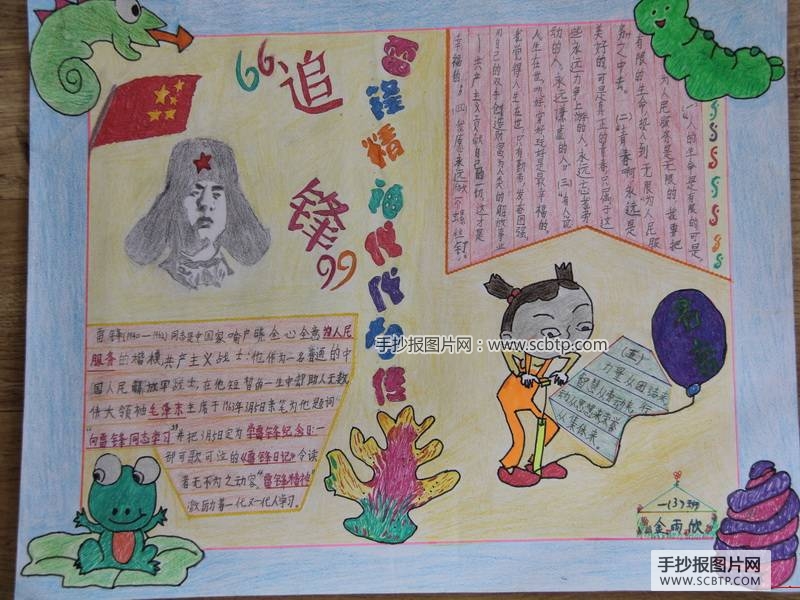 “追
锋”
雷锋精神代代相传
(一)人的生命是有限的,可是,
为人民服务是无限的,我要把
有限的生命,投入到无限的为人民服
务之中去。(二)青春啊,永远是
美好的,可是真正的青春,只属于这
些永远力争上游的人,永远忘我劳
动的人,永远谦虚的人!(三)有人说
人生在世,吃好穿好玩好是最幸福的。
我觉得人生在世,只有勤劳,发奋图强,
用自己的双手创造财富,为人类的解放事业
——共产主义贡献自己的一切,这才是
幸福的。(四)我愿永远做一个螺丝钉。
雷锋(1940—1962)同志是中国家喻户晓全心全意为人民
服务的楷模,共产主义战士;他作为一名普通的中
国人民解放军战士,在他短暂的一生中却助人无数,
伟大领袖毛泽东主席于1963年3月5日亲笔为他题词
“向雷锋同志学习”并把3月5日定为学雷锋纪念日;一
部可歌可泣的《雷锋日记》令读
者无不为之动容。“雷锋精神”
激励着一代又一代人学习。
(五)
力量从团结来
智慧从劳动来,行
动从思想来,荣誉
从集体来
一(3)班
金雨欣
手抄报图片网:www.scbtp.com
手抄报图片网
WWW.SCBTP.COM